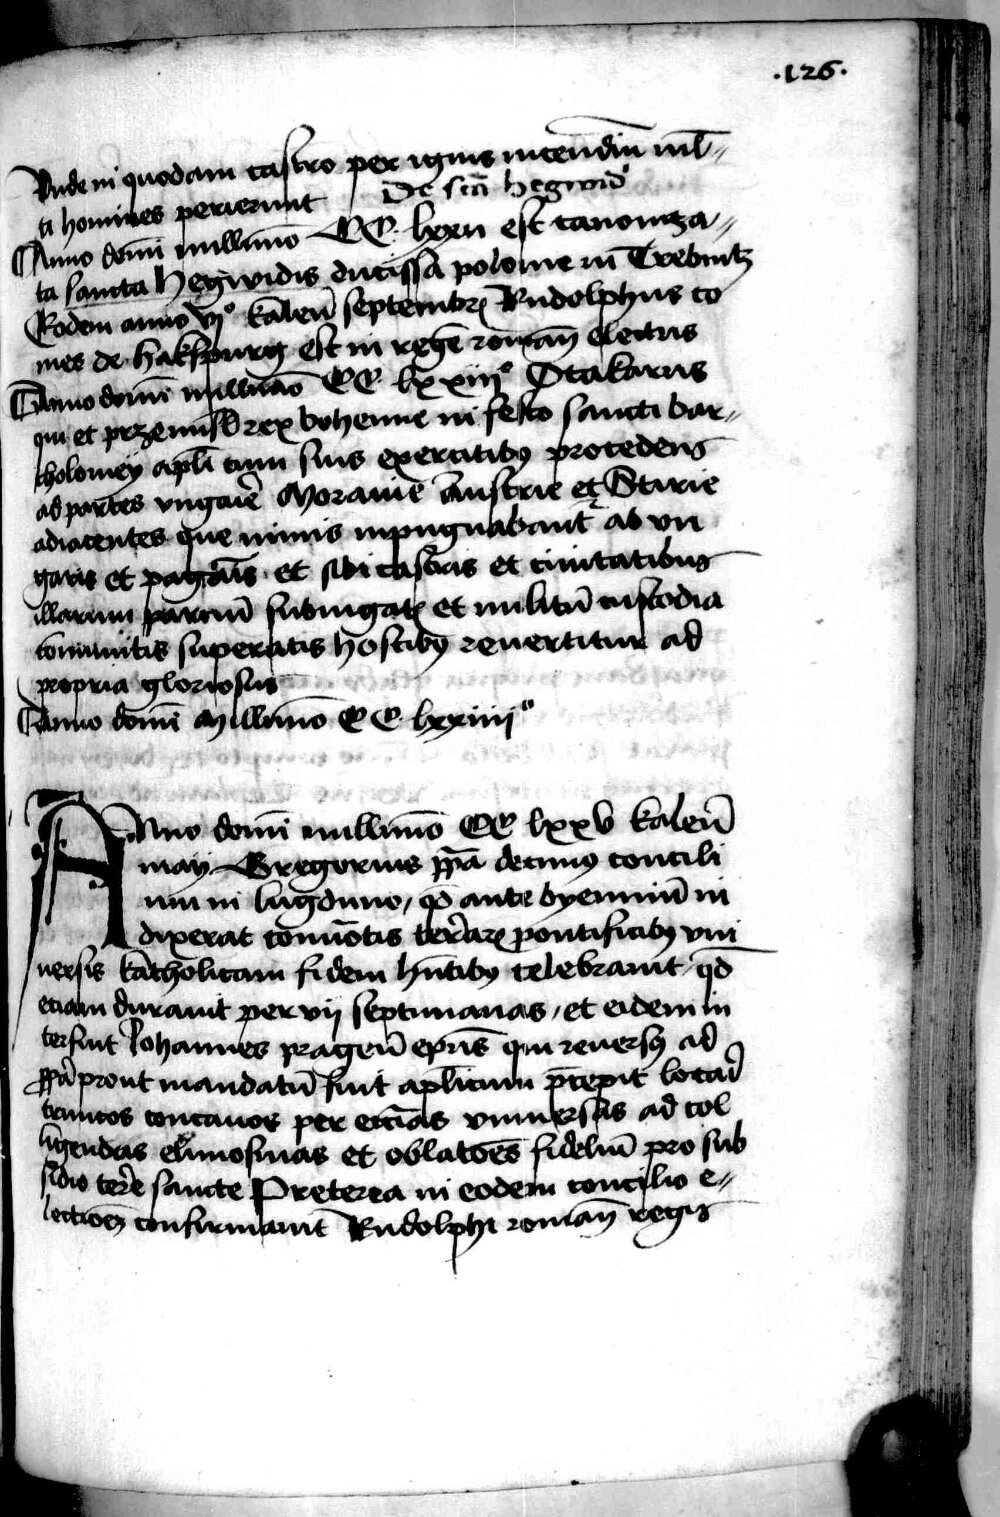 ·126·
Unde in quodam castro per ignis incendiũ ml̃-
ti homines perierunt De sctã hegwid
Anno domĩ millimo CC lxxii est canoniza-
ta sancta Hegwidis ducissa polonie in Trebnitz
Eodem anno vjº kaleñ septembr Rudolphus co
mes de haksspurg est in regẽ romañ electus
Anno domĩ millimo CC lxxiiiº Otakarus
qui et przemisl rex bohemie in festo sancti bar-
tholomey apl̃i cum suis exercitibus procedens
ad partes vngarie Moravie Austrie et Stirie
adiacentes que nimis inpugnabant̃ ab vn
garis et paganis et sibi castris et ciuitatibus
illarum parciũ subiugatis et militũ custodia
cõmunitis superatis hostibus reuertitur ad
propria gloriosus
Anno domĩ Millimo CC lxxiiiiº
Anno domĩ millimo CC lxxv kaleñ
may Gregorius papa decimus concili
um in lugduno, qd ante byenniũ in
dixerat conuocatis terrarum pontificibus vni
uersis katholicam fidem hñtibus celebrauit qd
eciam durauit per vij septimanas, et eidem in
terfuit Iohannes prageñ ep̃us qui reuersus ad
ppã prout mandatũ fuit apl̃icum p̃cepit locari
truncos concauos per ecc̃ias vniuersas ad col
ligendas elimosinas et oblatões fideliũ pro sub
sidio terre sancte Preterea in eodem concilio e-
lectioẽ confirmauit Rudolphi romañ regis